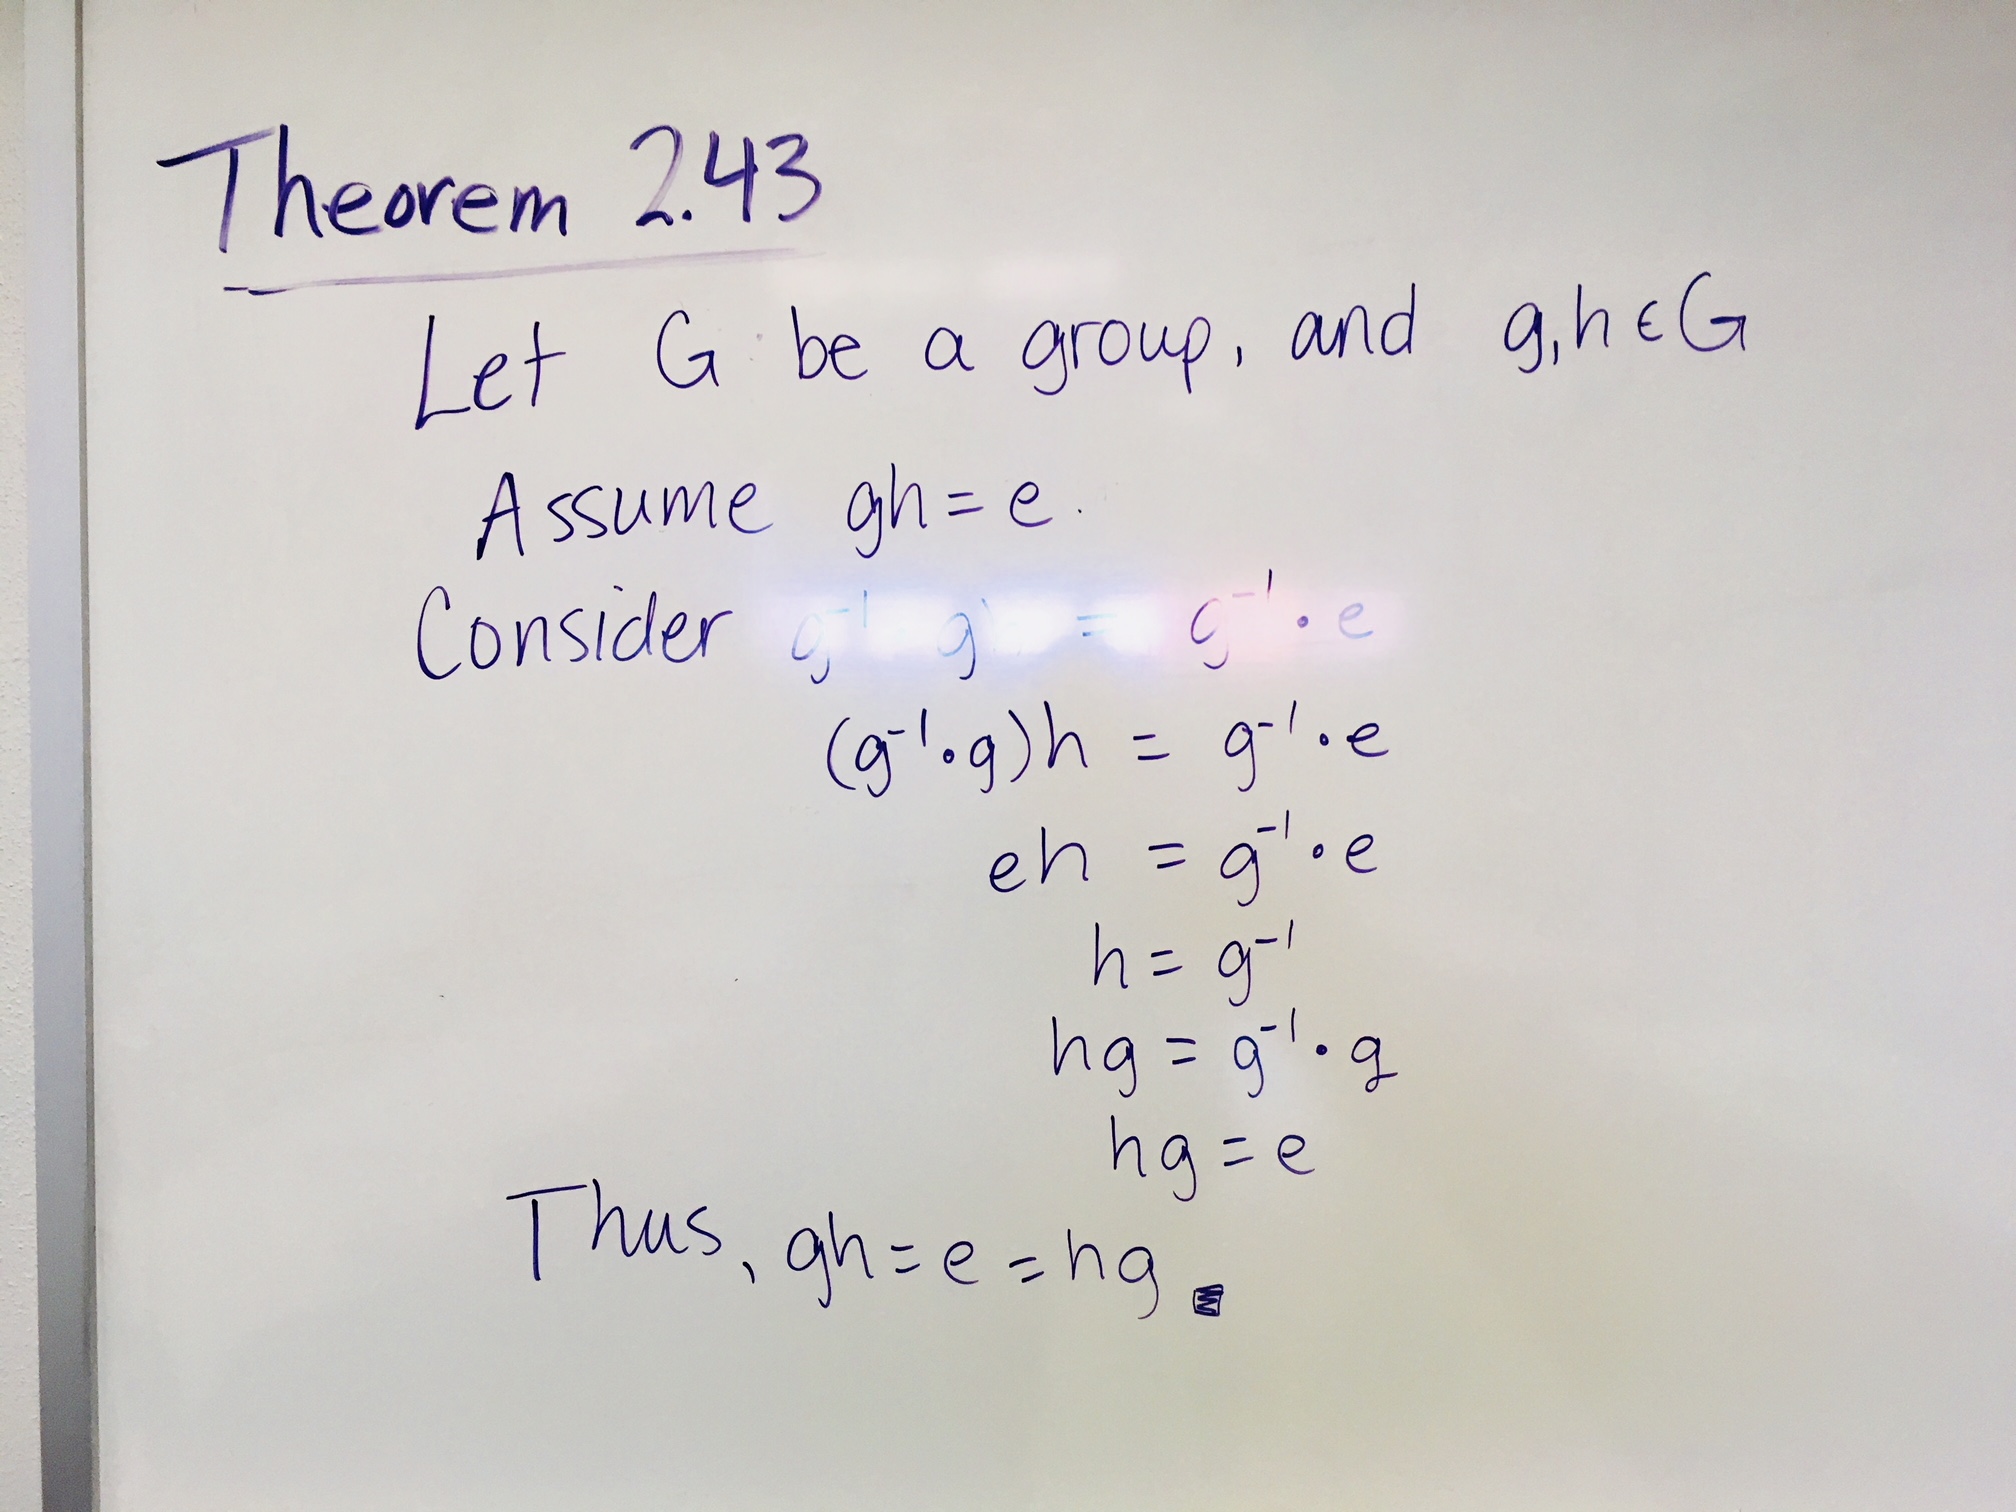 Theorem 2.43
Let G be a group, and g,h ∈ G
Assume gh = e.
Consider g⁻¹ g = g⁻¹ • e
(g⁻¹•g)h = g⁻¹•e
eh = g⁻¹•e
h = g⁻¹
hg = g⁻¹•g
hg = e
Thus, gh = e = hg ■